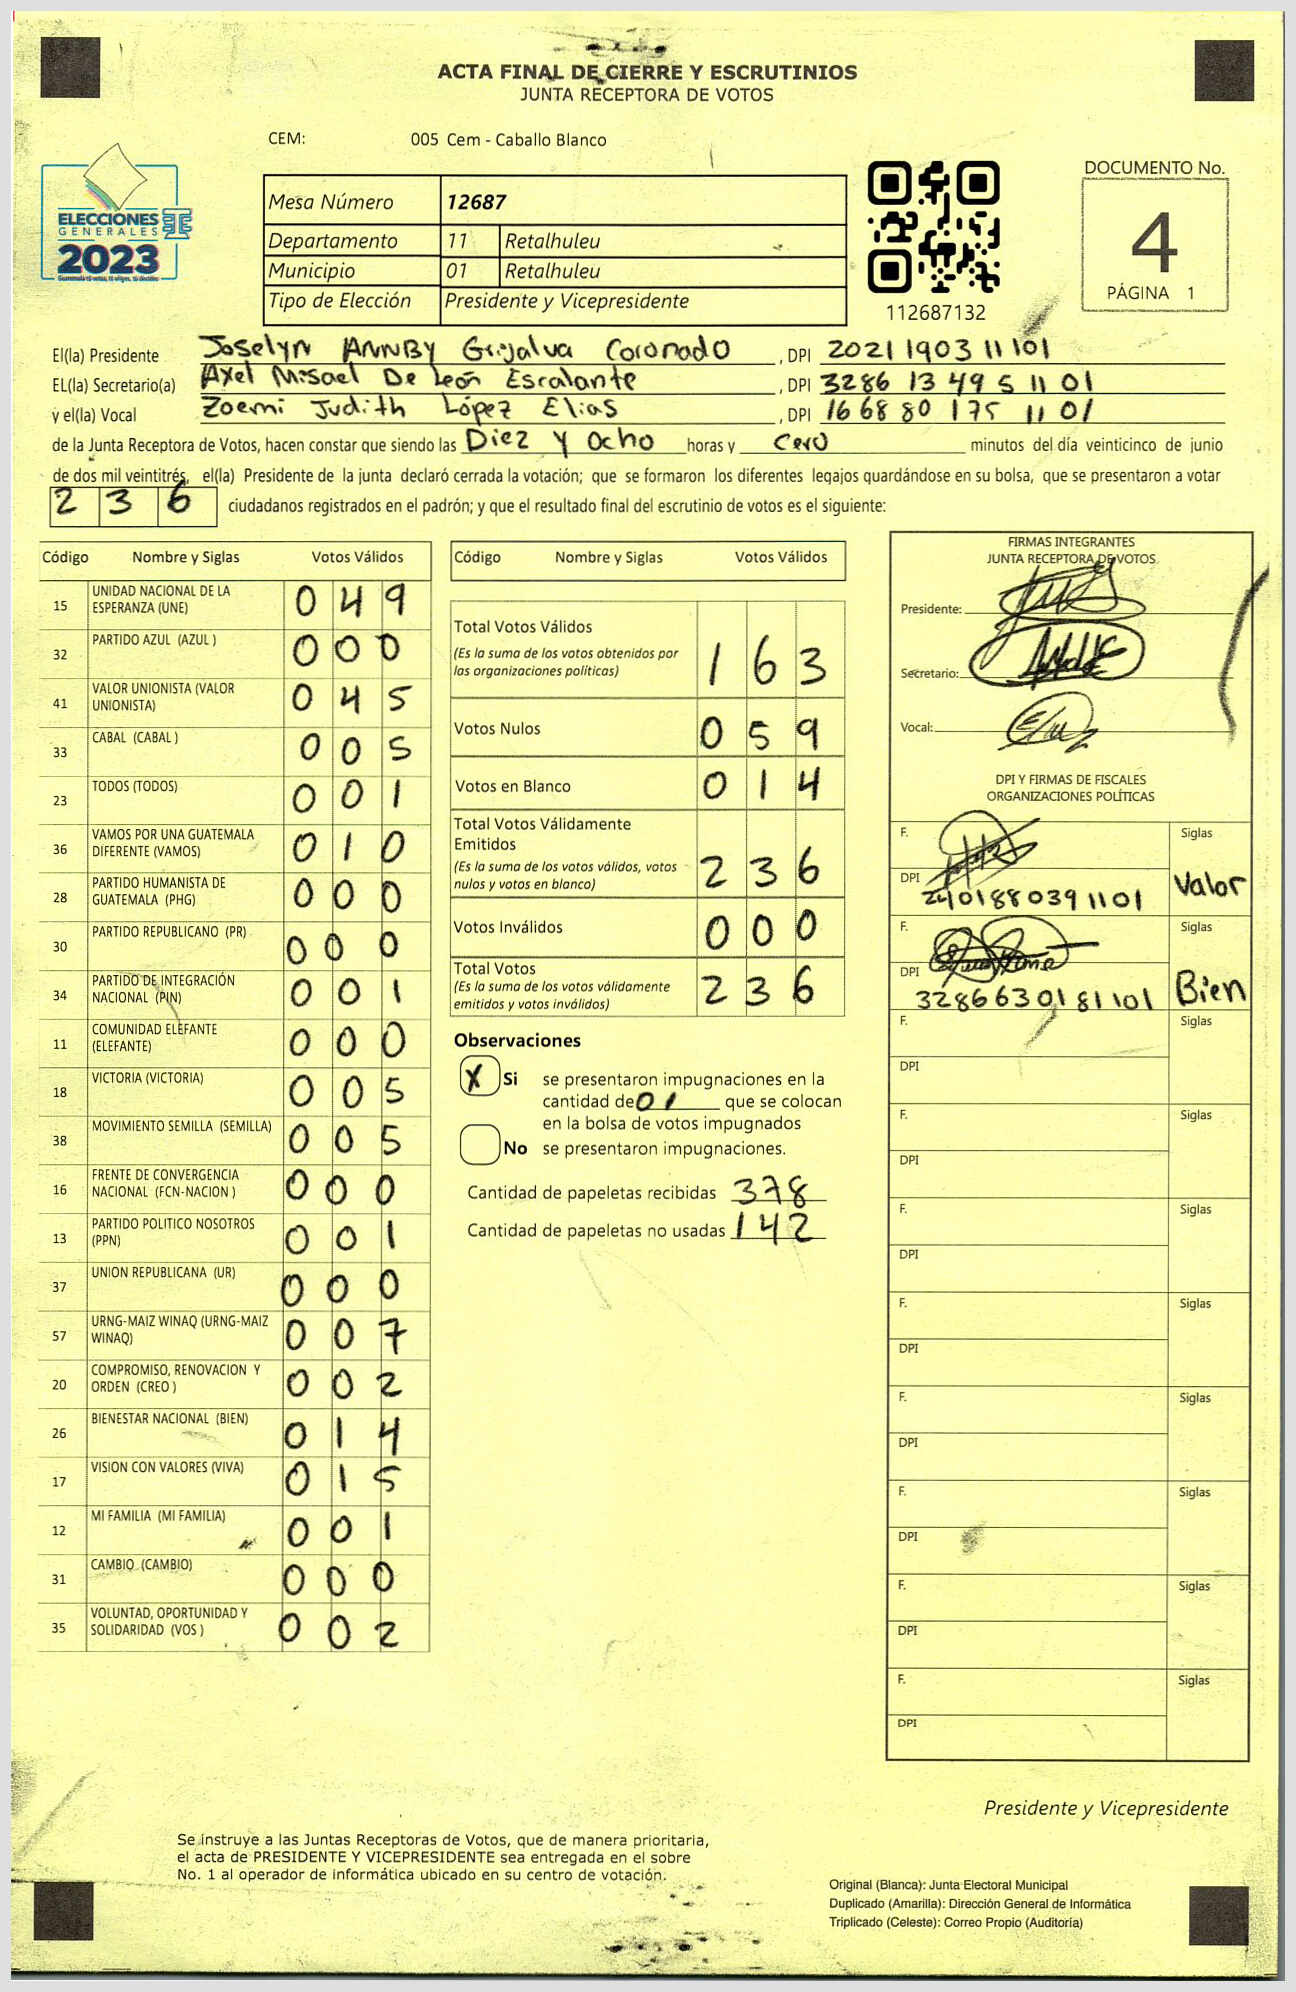 ACTA FINAL DE CIERRE Y ESCRUTINIOS
JUNTA RECEPTORA DE VOTOS
CEM: 005 Cem - Caballo Blanco
ELECCIONES
GENERALES
2023
Mesa Número 12687
Departamento 11 Retalhuleu
Municipio 01 Retalhuleu
Tipo de Elección Presidente y Vicepresidente
112687132
DOCUMENTO No.
4
PÁGINA 1
El(la) Presidente Joselyn ANNBY Grijalva Coronado , DPI 2021 1903 11101
EL(la) Secretario(a) Axel Misael De León Escalante , DPI 3286 13 49 5 11 01
y el(la) Vocal Zoemi Judith López Elias , DPI 16 68 80 175 11 01
de la Junta Receptora de Votos, hacen constar que siendo las Diez y Ocho horas y Cero minutos del día veinticinco de junio
de dos mil veintitrés, el(la) Presidente de la junta declaró cerrada la votación; que se formaron los diferentes legajos guardándose en su bolsa, que se presentaron a votar
236 ciudadanos registrados en el padrón; y que el resultado final del escrutinio de votos es el siguiente:
Código Nombre y Siglas Votos Válidos
15 UNIDAD NACIONAL DE LA ESPERANZA (UNE) 049
32 PARTIDO AZUL (AZUL ) 000
41 VALOR UNIONISTA (VALOR UNIONISTA) 045
33 CABAL (CABAL ) 005
23 TODOS (TODOS) 001
36 VAMOS POR UNA GUATEMALA DIFERENTE (VAMOS) 010
28 PARTIDO HUMANISTA DE GUATEMALA (PHG) 000
30 PARTIDO REPUBLICANO (PR) 000
34 PARTIDO DE INTEGRACIÓN NACIONAL (PIN) 001
11 COMUNIDAD ELEFANTE (ELEFANTE) 000
18 VICTORIA (VICTORIA) 005
38 MOVIMIENTO SEMILLA (SEMILLA) 005
16 FRENTE DE CONVERGENCIA NACIONAL (FCN-NACION ) 000
13 PARTIDO POLITICO NOSOTROS (PPN) 001
37 UNION REPUBLICANA (UR) 000
57 URNG-MAIZ WINAQ (URNG-MAIZ WINAQ) 007
20 COMPROMISO, RENOVACION Y ORDEN (CREO ) 002
26 BIENESTAR NACIONAL (BIEN) 014
17 VISION CON VALORES (VIVA) 015
12 MI FAMILIA (MI FAMILIA) 001
31 CAMBIO (CAMBIO) 000
35 VOLUNTAD, OPORTUNIDAD Y SOLIDARIDAD (VOS ) 002
Código Nombre y Siglas Votos Válidos
Total Votos Válidos 163
(Es la suma de los votos obtenidos por
las organizaciones políticas)
Votos Nulos 059
Votos en Blanco 014
Total Votos Válidamente
Emitidos 236
(Es la suma de los votos válidos, votos
nulos y votos en blanco)
Votos Inválidos 000
Total Votos 236
(Es la suma de los votos válidamente
emitidos y votos inválidos)
Observaciones
X Si se presentaron impugnaciones en la
cantidad de 01 que se colocan
en la bolsa de votos impugnados
No se presentaron impugnaciones.
Cantidad de papeletas recibidas 378
Cantidad de papeletas no usadas 142
FIRMAS INTEGRANTES
JUNTA RECEPTORA DE VOTOS
Presidente:
Secretario:
Vocal:
DPI Y FIRMAS DE FISCALES
ORGANIZACIONES POLÍTICAS
F. Siglas
DPI 2401880391101 Valor
F. Siglas
DPI 3286630181101 Bien
F. Siglas
DPI
F. Siglas
DPI
F. Siglas
DPI
F. Siglas
DPI
F. Siglas
DPI
F. Siglas
DPI
F. Siglas
DPI
F. Siglas
DPI
Presidente y Vicepresidente
Se instruye a las Juntas Receptoras de Votos, que de manera prioritaria,
el acta de PRESIDENTE Y VICEPRESIDENTE sea entregada en el sobre
No. 1 al operador de informática ubicado en su centro de votación.
Original (Blanca): Junta Electoral Municipal
Duplicado (Amarilla): Dirección General de Informática
Triplicado (Celeste): Correo Propio (Auditoría)